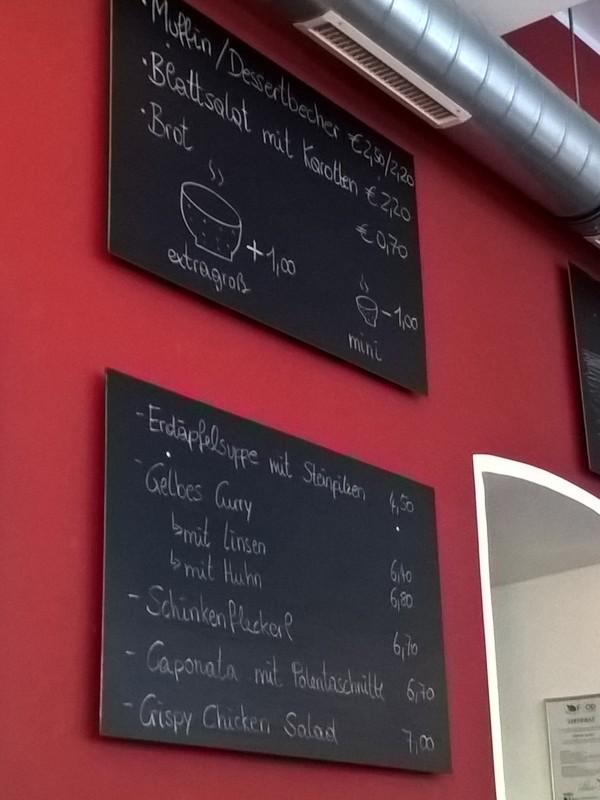 · Muffin/Dessertbecher €2,50/2,20
· Blattsalat mit Karotten €2,20
· Brot €0,70
+1,00
extragroß
-1,00
mini
- Erdäpfelsuppe mit Steinpilzen 4,50
- Gelbes Curry
↳ mit Linsen 6,40
↳ mit Huhn 6,80
- Schinkenfleckerl 6,70
- Caponata mit Polentaschnitte 6,70
- Crispy Chicken Salad 7,00